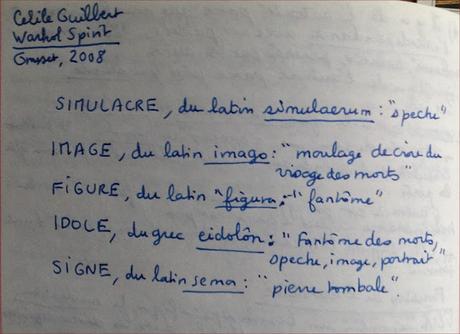 Cécile Guilbert
Warhol Spirit
Grasset, 2008
SIMULACRE, du latin simulacrum : "speche"
IMAGE, du latin imago : "moulage de cire du
visage des morts"
FIGURE, du latin "figura, -" "fantôme"
IDOLE, du grec eidolôn : "Fantôme des morts,
speche, image, portrait"
SIGNE, du latin sema : "pierre tombale".